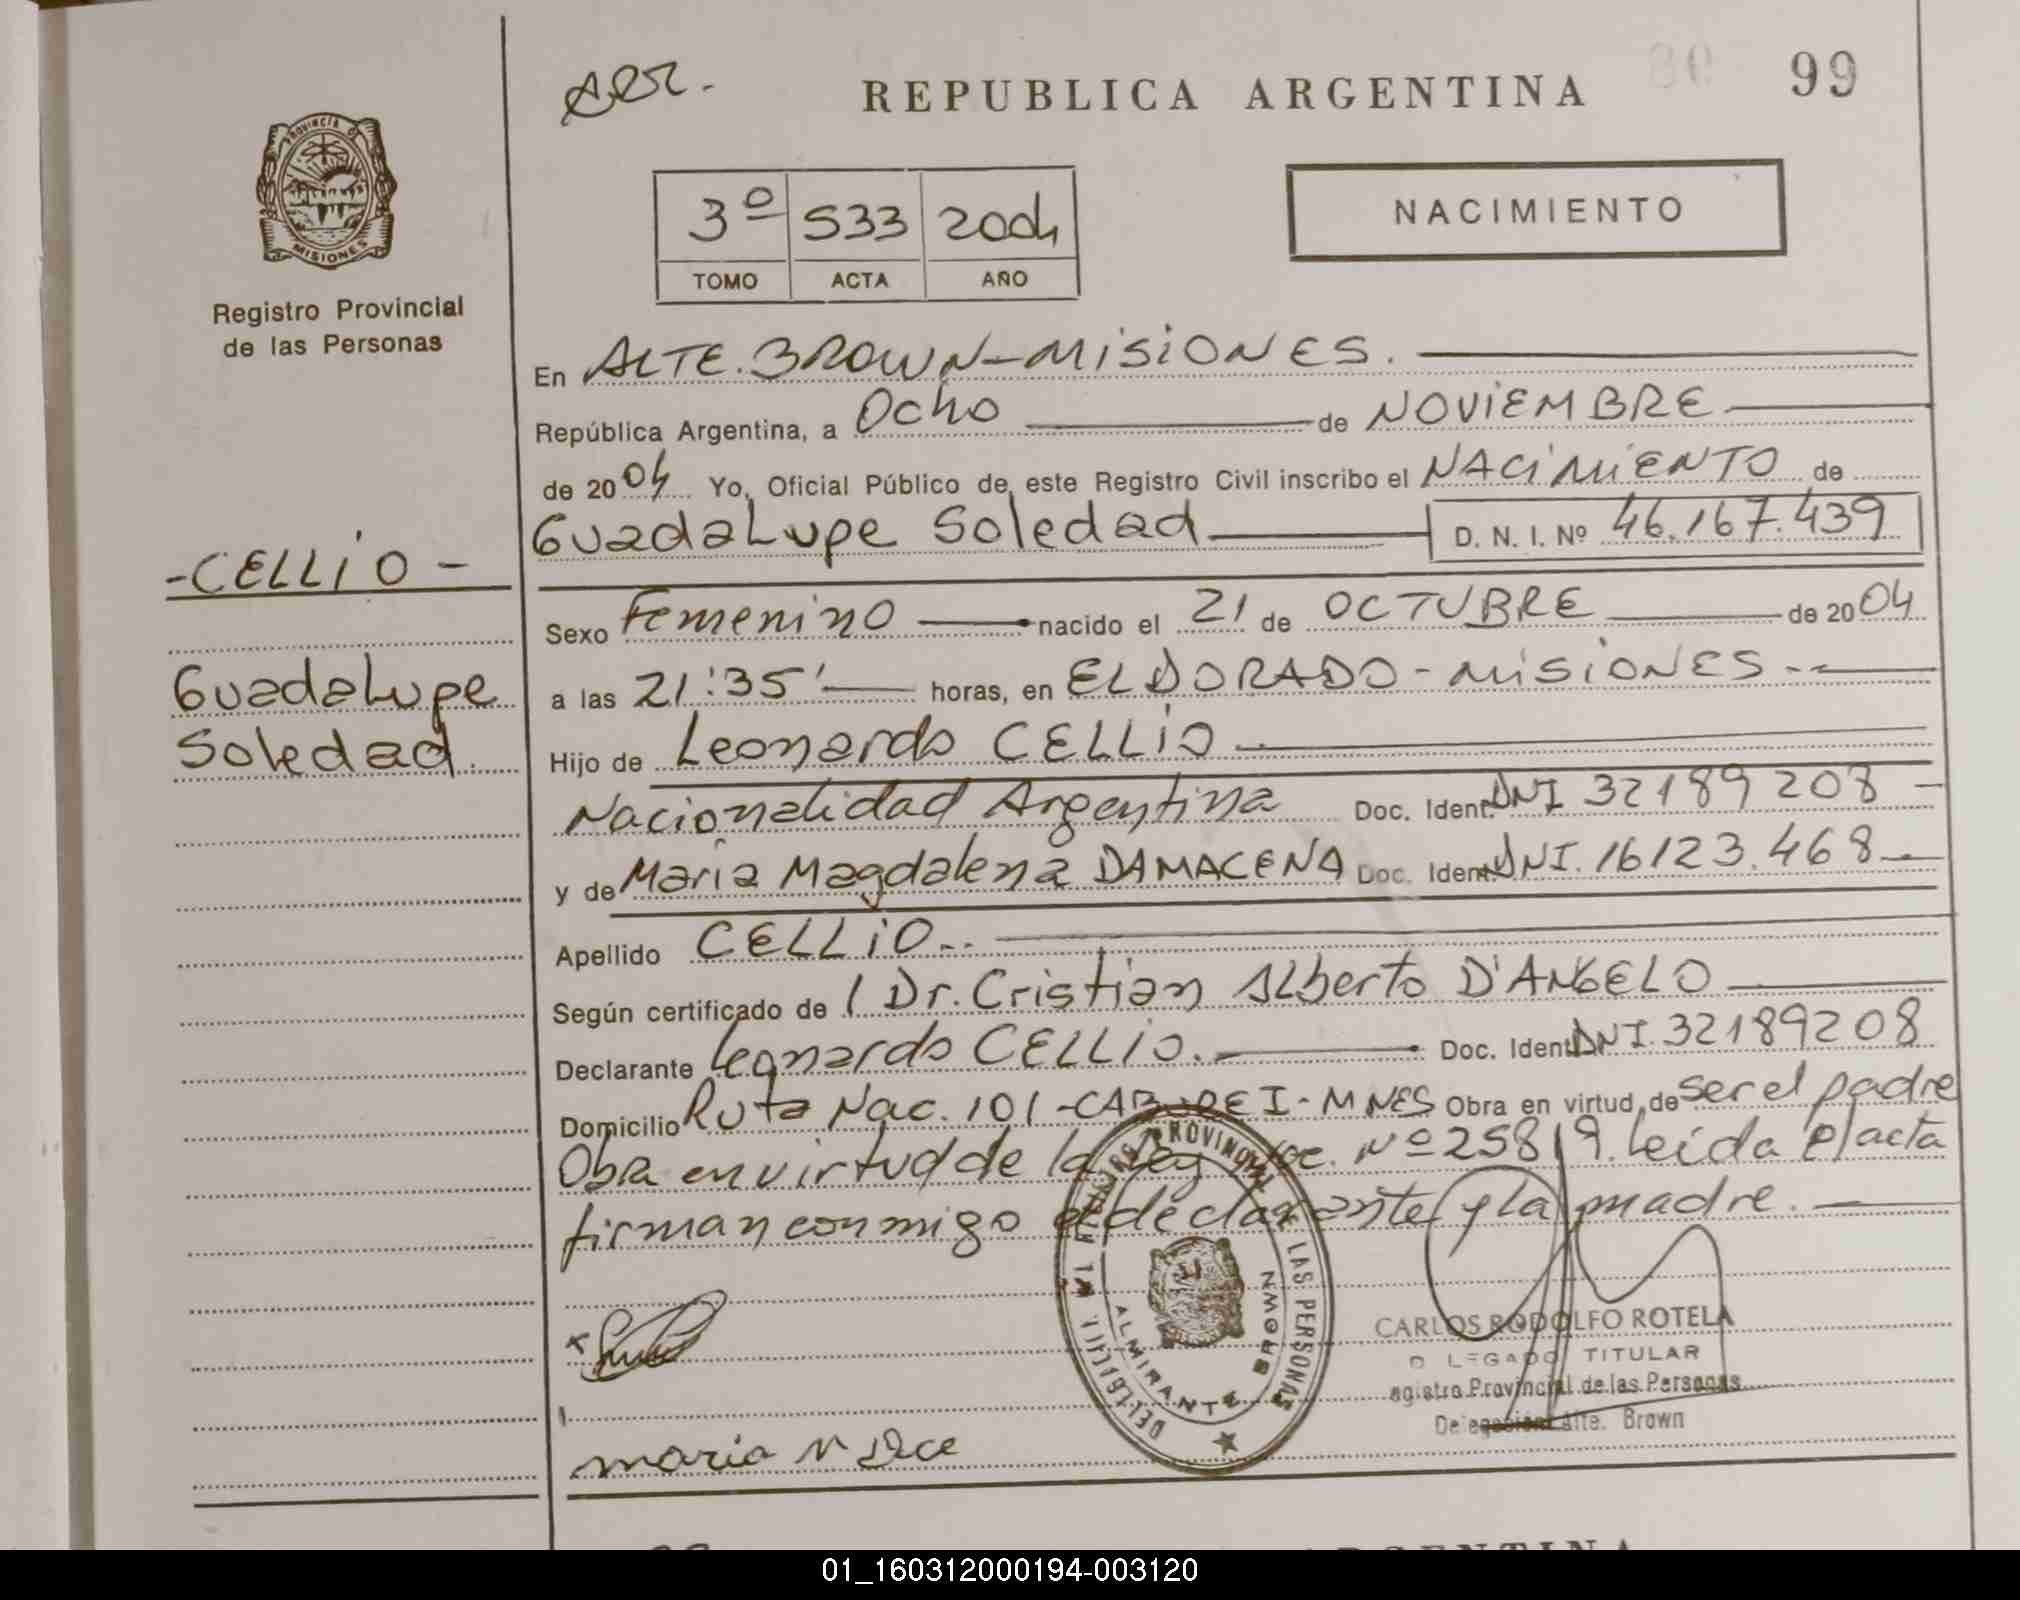 REPUBLICA ARGENTINA
99
PROVINCIA DE
MISIONES
Registro Provincial
de las Personas
3º 533 2004
TOMO ACTA AÑO
NACIMIENTO
En ALTE. BROWN-MISIONES.
República Argentina, a Ocho de NOVIEMBRE
de 2004 Yo, Oficial Público de este Registro Civil inscribo el NACIMIENTO de
Guadalupe Soledad D. N. I. Nº 46.167.439
-CELLIO-
Guadalupe
Soledad.
Sexo Femenino nacido el 21 de OCTUBRE de 2004
a las 21:35' horas, en ELDORADO-MISIONES--
Hijo de Leonardo CELLIO
Nacionalidad Argentina Doc. Ident. DNI 32189208-
y de Maria Magdalena DAMACENA Doc. Ident. DNI. 16123.468-
Apellido CELLIO--
Según certificado de Dr. Cristian Alberto D'ANGELO
Declarante Leonardo CELLIO. Doc. Ident. DNI. 32189208
Domicilio Ruta Nac. 101-CABUREI-MNES Obra en virtud de ser el padre
Obra en virtud de la Ley Nº 25819. Leida el acta
firman conmigo el declarante y la madre.
DELEGACION
REGISTRO PROVINCIAL DE LAS PERSONAS
ALMIRANTE BROWN
CARLOS RODOLFO ROTELA
D LEGADO TITULAR
egistro Provincial de las Personas
Delegación Alte. Brown
maria
ARGENTINA
01_160312000194-003120